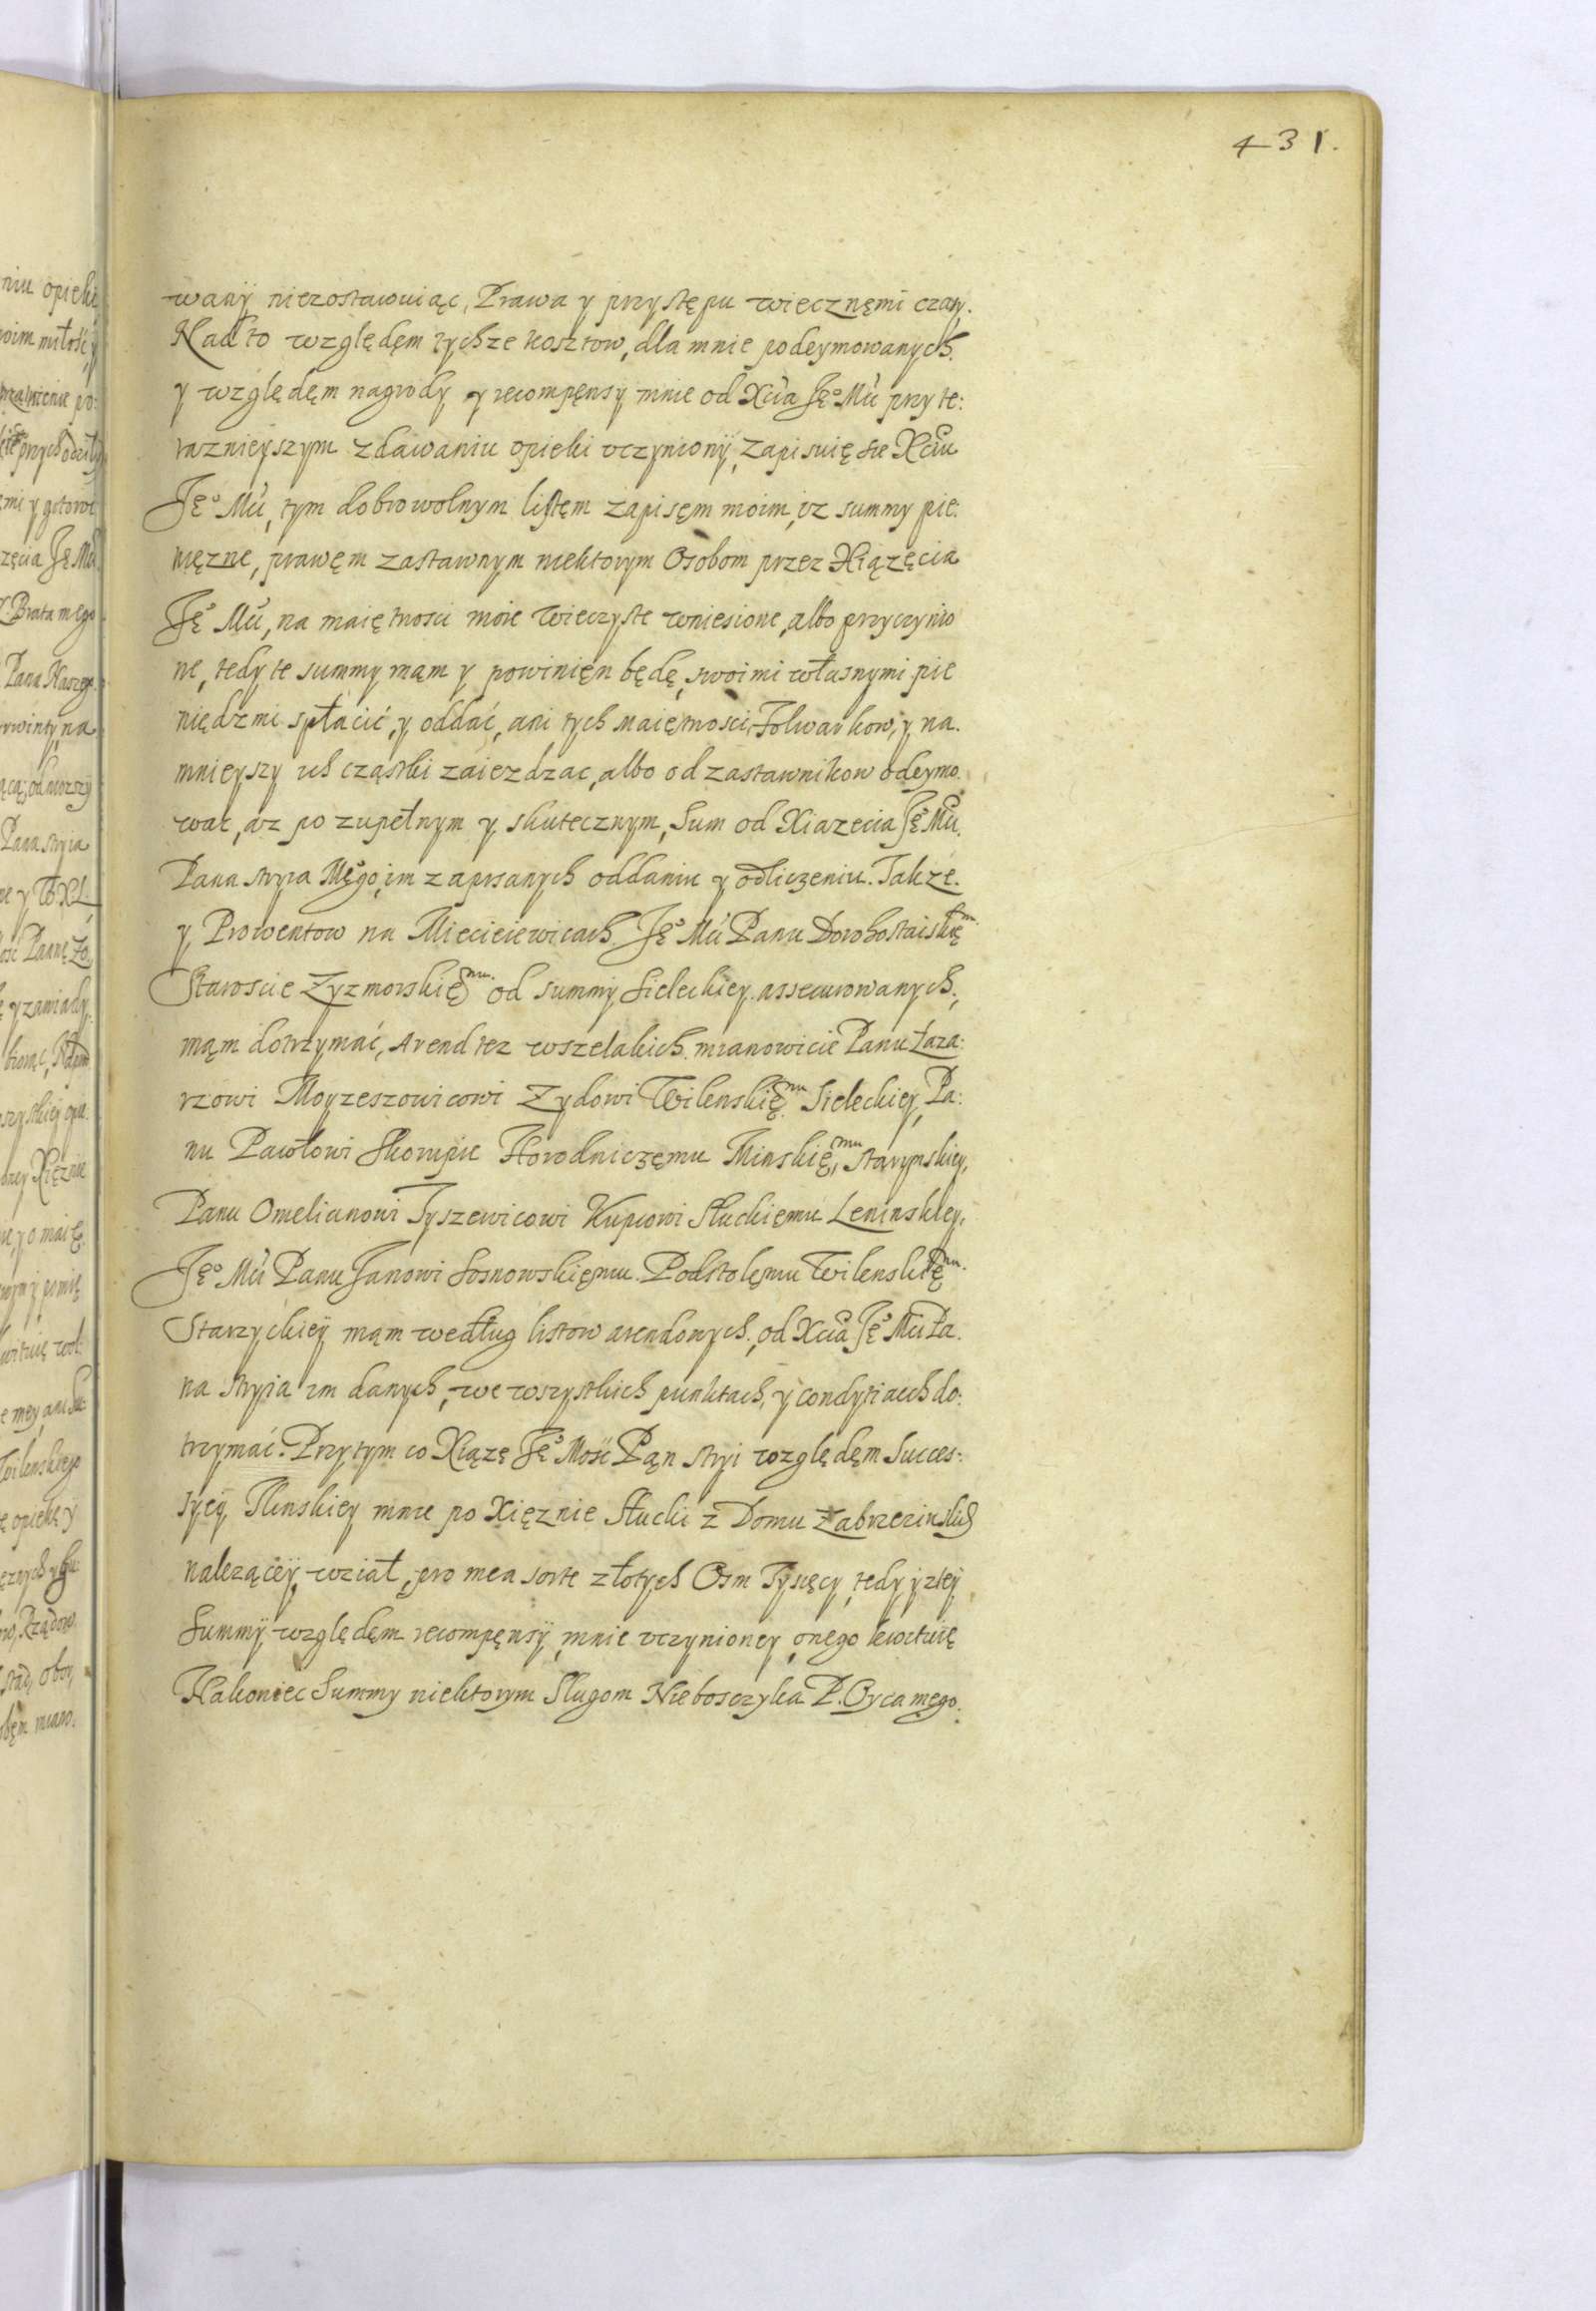 431.
wanÿ niezostawuiąc, Prawa y przystępu wiecznęmi czasy.
Nad to względęm tychze kosztow, dla mnie podeymowanych.
y względęm nagrody y recompęnsy mnie od Xcia Ję° Mci przy te:
raznieyszym zdawaniu opieki vczynionÿ, zapisuię sie Xciu
Ję° Mci, tym dobrowolnym listęm zapisęm moim, iz summy pie:
nięzne, prawęm zastawnym niektorym Osobom przez Xiązęcia
Ję° Mci, na maiętnosci moie wieczyste wniesione, albo przyczynio
ne, tedy te summy mąm y powinięn będę, swoimi własnymi pie
niędzmi spłacić, y oddać, ani tych maiętnosci, Folwarkow, y na.
mnieyszy ich cząstki zaiezdzac, albo od zastawnikow odeymo.
wac, az po zupełnym y skutecznym, Sum od Xiazecia Ję° Mci.
Pana stryia Mego, im zapisanych oddaniu y odliczeniu. Takze.
y Prowentow na Mieciciewicach Ję° Mci Panu Dorohostaiskię mu
Staroscie Zyzmorskię mu. od summy Sieleckiey assecurowanych,
mąm dotrzymać, Arend tez wszelakich. mianowicie Panu Łaza:
rzowi Moyzeszowicowi Zydowi Wilenskię mu Sieleckiey, Pa:
nu Pawłowi Skorupie Horodniczęmu Minskię mu, Starynskiey,
Panu Omelianowi Tyszewicowi Kupcowi Słuckiemu Leninskiey,
Ję° Mci Panu Janowi Sosnowskięmu. Podstolęmu Wilenskię mu.
Starzyckieÿ mąm według listow arendownych, od Xcia Ję° Mci Pa.
na stryia im danych, we wszystkich punktach, y condytiach do:
trzymać. Przytym co Xiązę Ję° Mość Pąn stryi względęm Succes:
syeÿ Ilinskiey mnie po Xięznie Słucki z Domu Zabrzezinskich
nalezącey, wziął, pro mea sorte złotych Osm Tysięcy, tedy y ztey
Summÿ względęm recompęnsÿ, mnie vczynioney, onego kwituię
Nakoniec Summy niektorym Slugom Nieboszczyka P. Oyca mego.